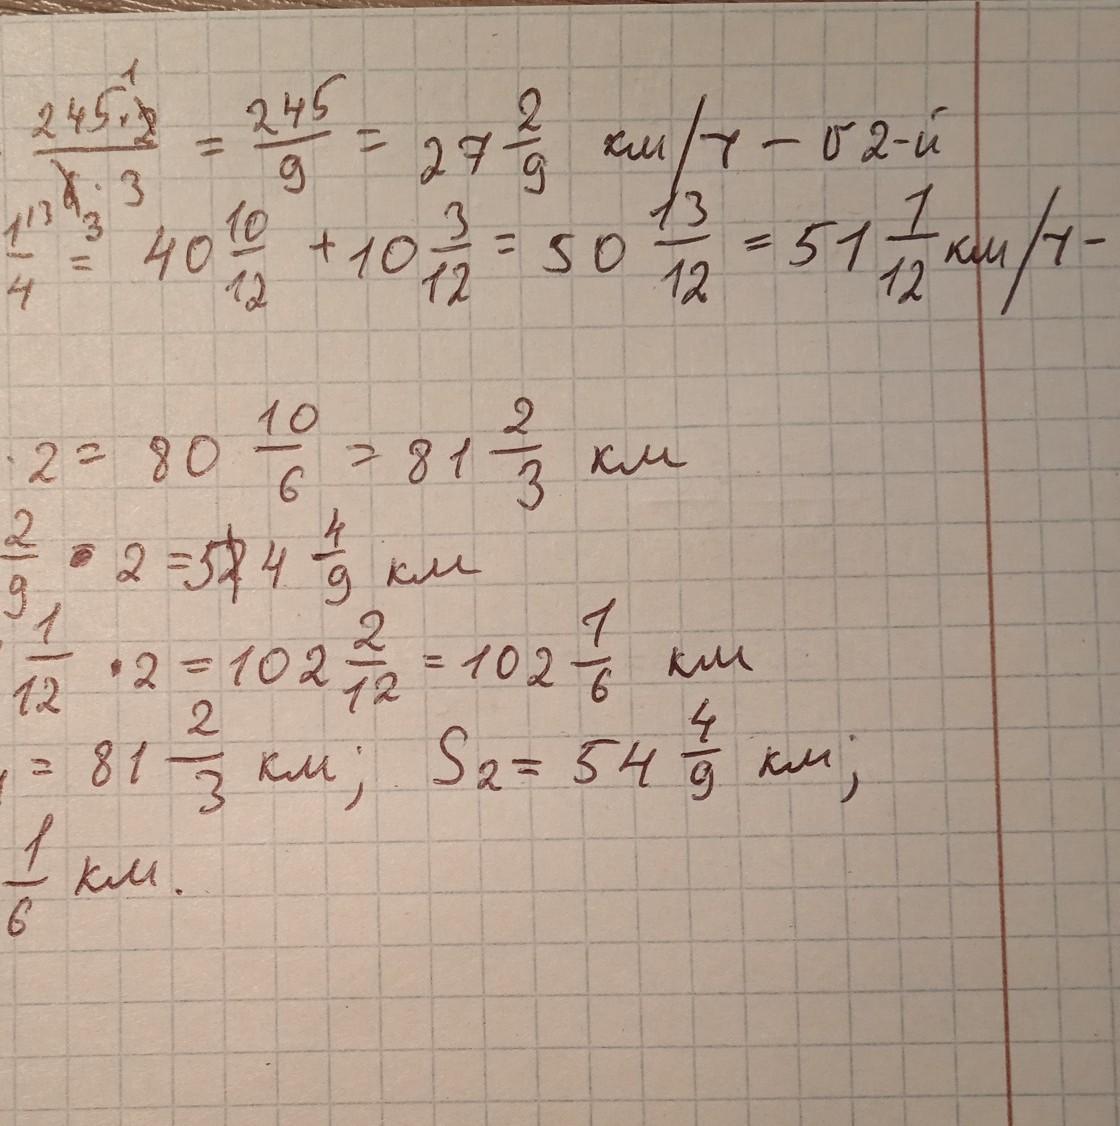 245·2/6·3 = 245/9 = 27 2/9 км/ч – v 2-й
1/4 = 40 10/12 + 10 3/12 = 50 13/12 = 51 1/12 км/ч –
· 2 = 80 10/6 = 81 2/3 км
2/9 · 2 = 54 4/9 км
1/12 · 2 = 102 2/12 = 102 1/6 км
= 81 2/3 км; S2 = 54 4/9 км;
1/6 км.